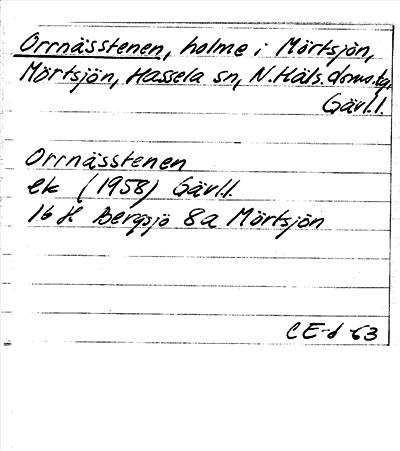 Orrnässtenen, holme i Mörtsjön,
Mörtsjön, Hassela sn, N.Häls. domsag.
Gävl.l.
Orrnässtenen
ek (1958) Gävl.l.
16 H Bergsjö 8a Mörtsjön
CE-d 63